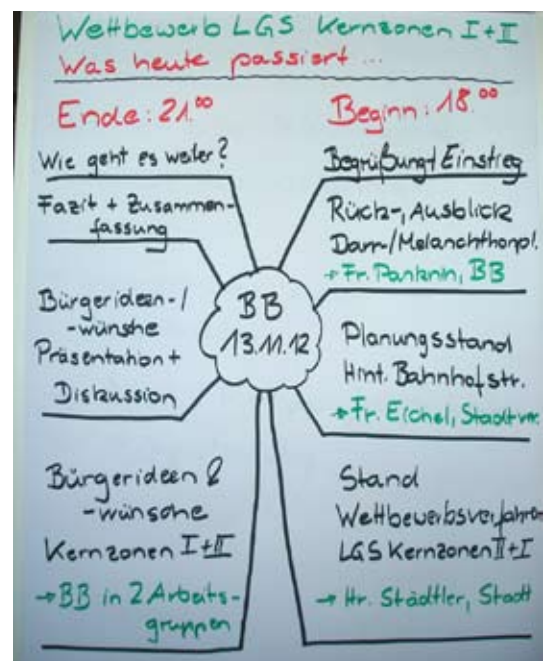 Wettbewerb LGS Kernzonen I+II
Was heute passiert ...
Beginn: 18.00
Begrüßung+Einstieg
Rück-, Ausblick
Dam-/Melanchthonpl.
→ Fr. Panknin, BB
Planungsstand
Hint. Bahnhofstr.
→ Fr. Eichel, Stadtverw.
Stand
Wettbewerbsverfahren
LGS Kernzonen II+I
→ Hr. Städtler, Stadt
Bürgerideen &
-wünsche
Kernzonen I+II
→ BB in 2 Arbeits-
gruppen
Bürgerideen-/
-wünsche
Präsentation+
Diskussion
Fazit + Zusammen-
fassung
Wie geht es weiter?
Ende: 21.00
BB
13.11.12